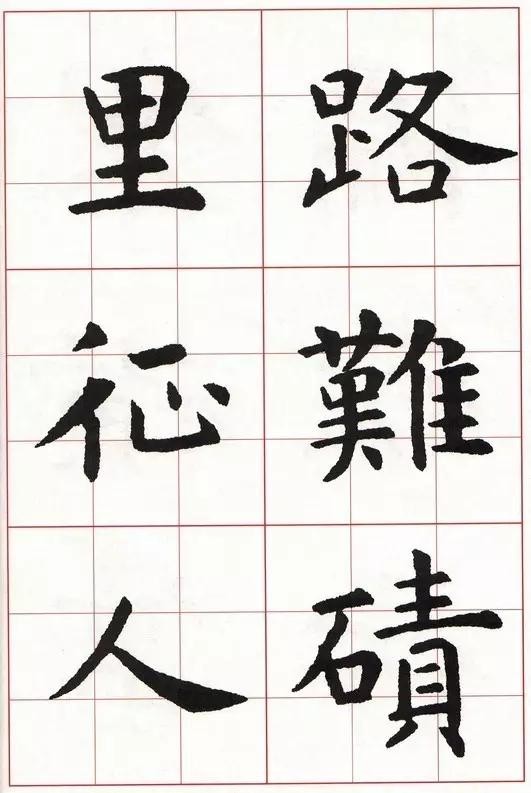 路難磧
里征人